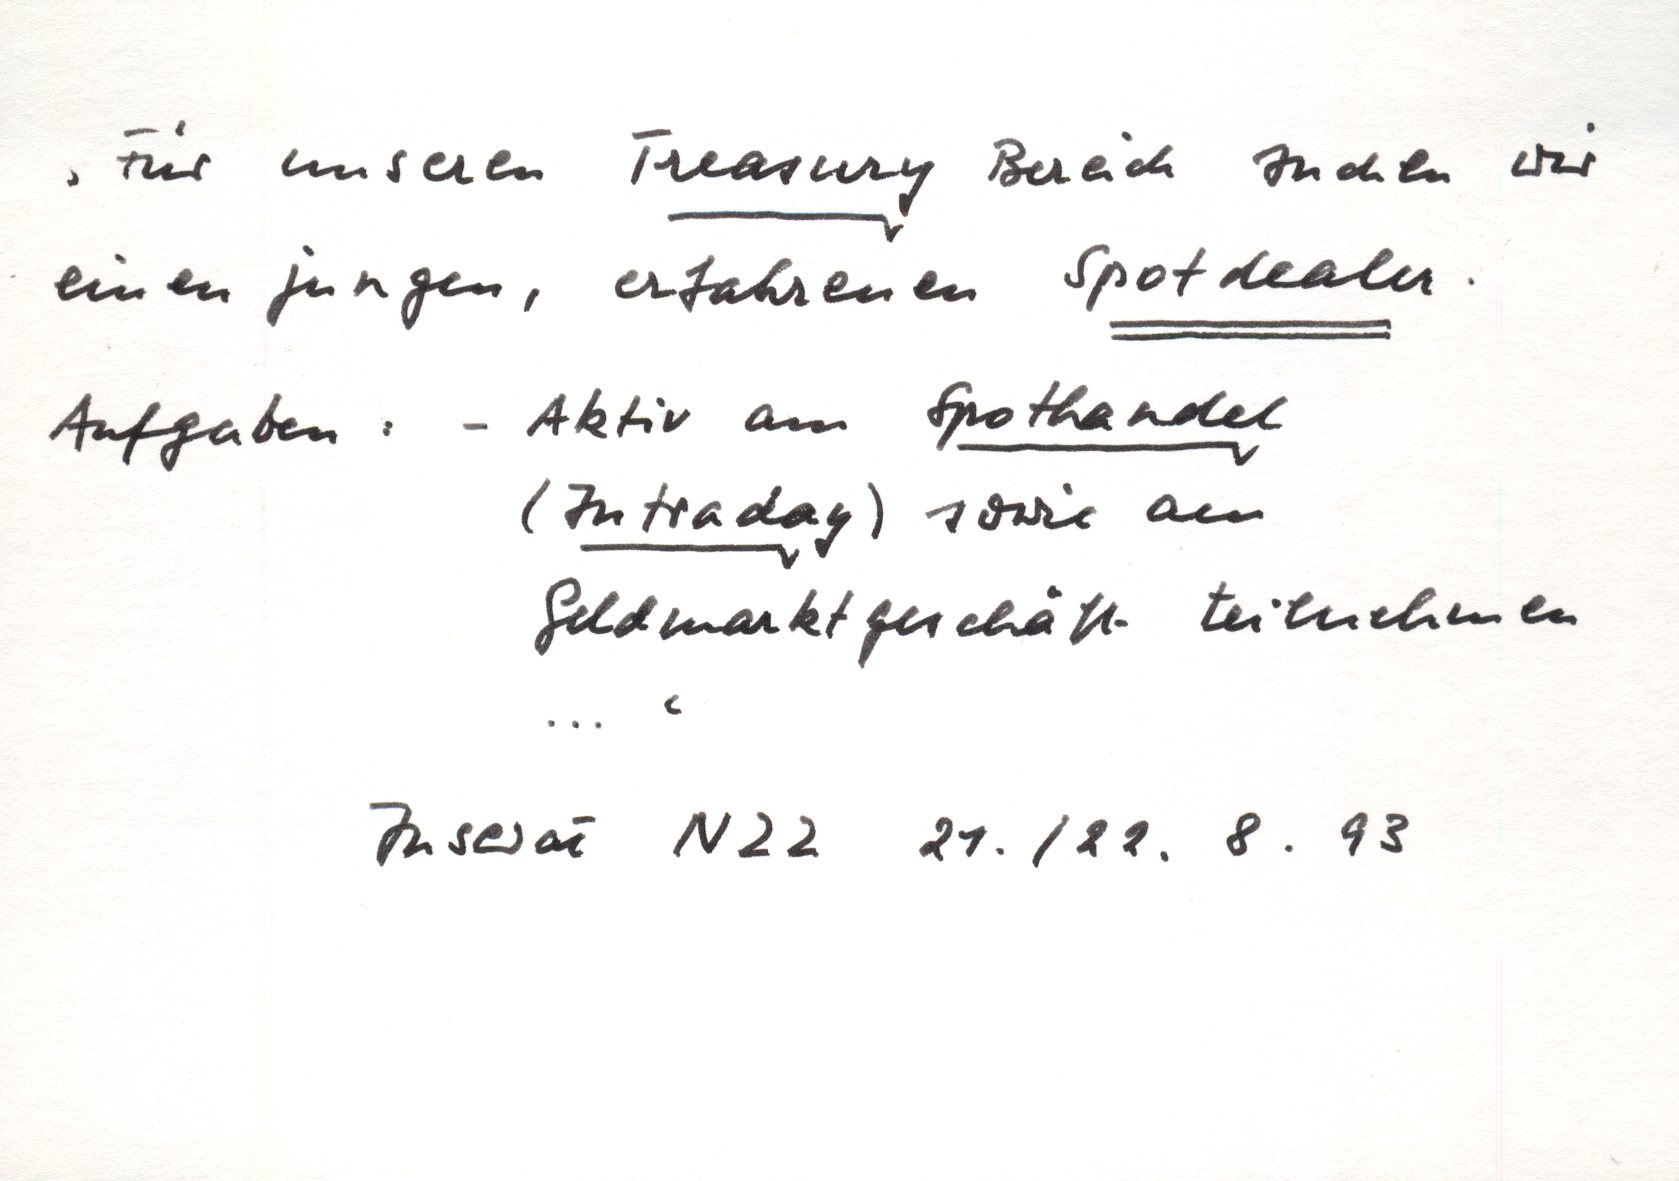 ‚Für unseren Treasury Bereich suchen wir
einen jungen, erfahrenen Spotdealer.
Aufgaben: - Aktiv am Spothandel
(Intraday) sowie am
Geldmarktgeschäft teilnehmen
... ‘
Inserat NZZ 21./22. 8. 93